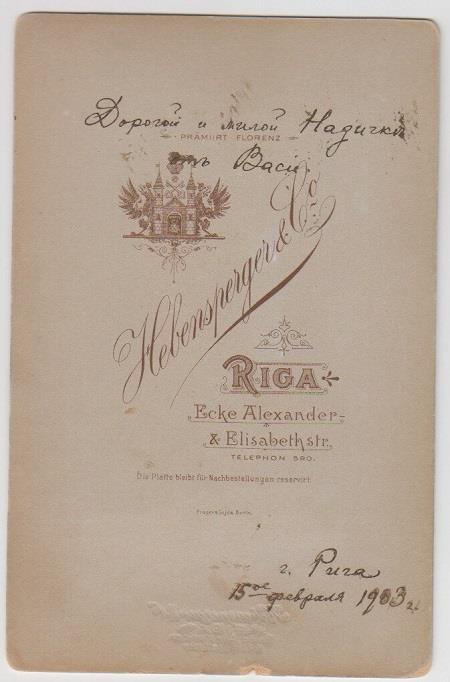 Дорогой и милой Надички
PRÄMIIRT FLORENZ
отъ Васи
Hebensperger & Co
RIGA
Ecke Alexander-
& Elisabethstr.
TELEPHON 590.
Die Platte bleibt für Nachbestellungen reservirt.
Berlin.
г. Рига
15ое февраля 1903 г.